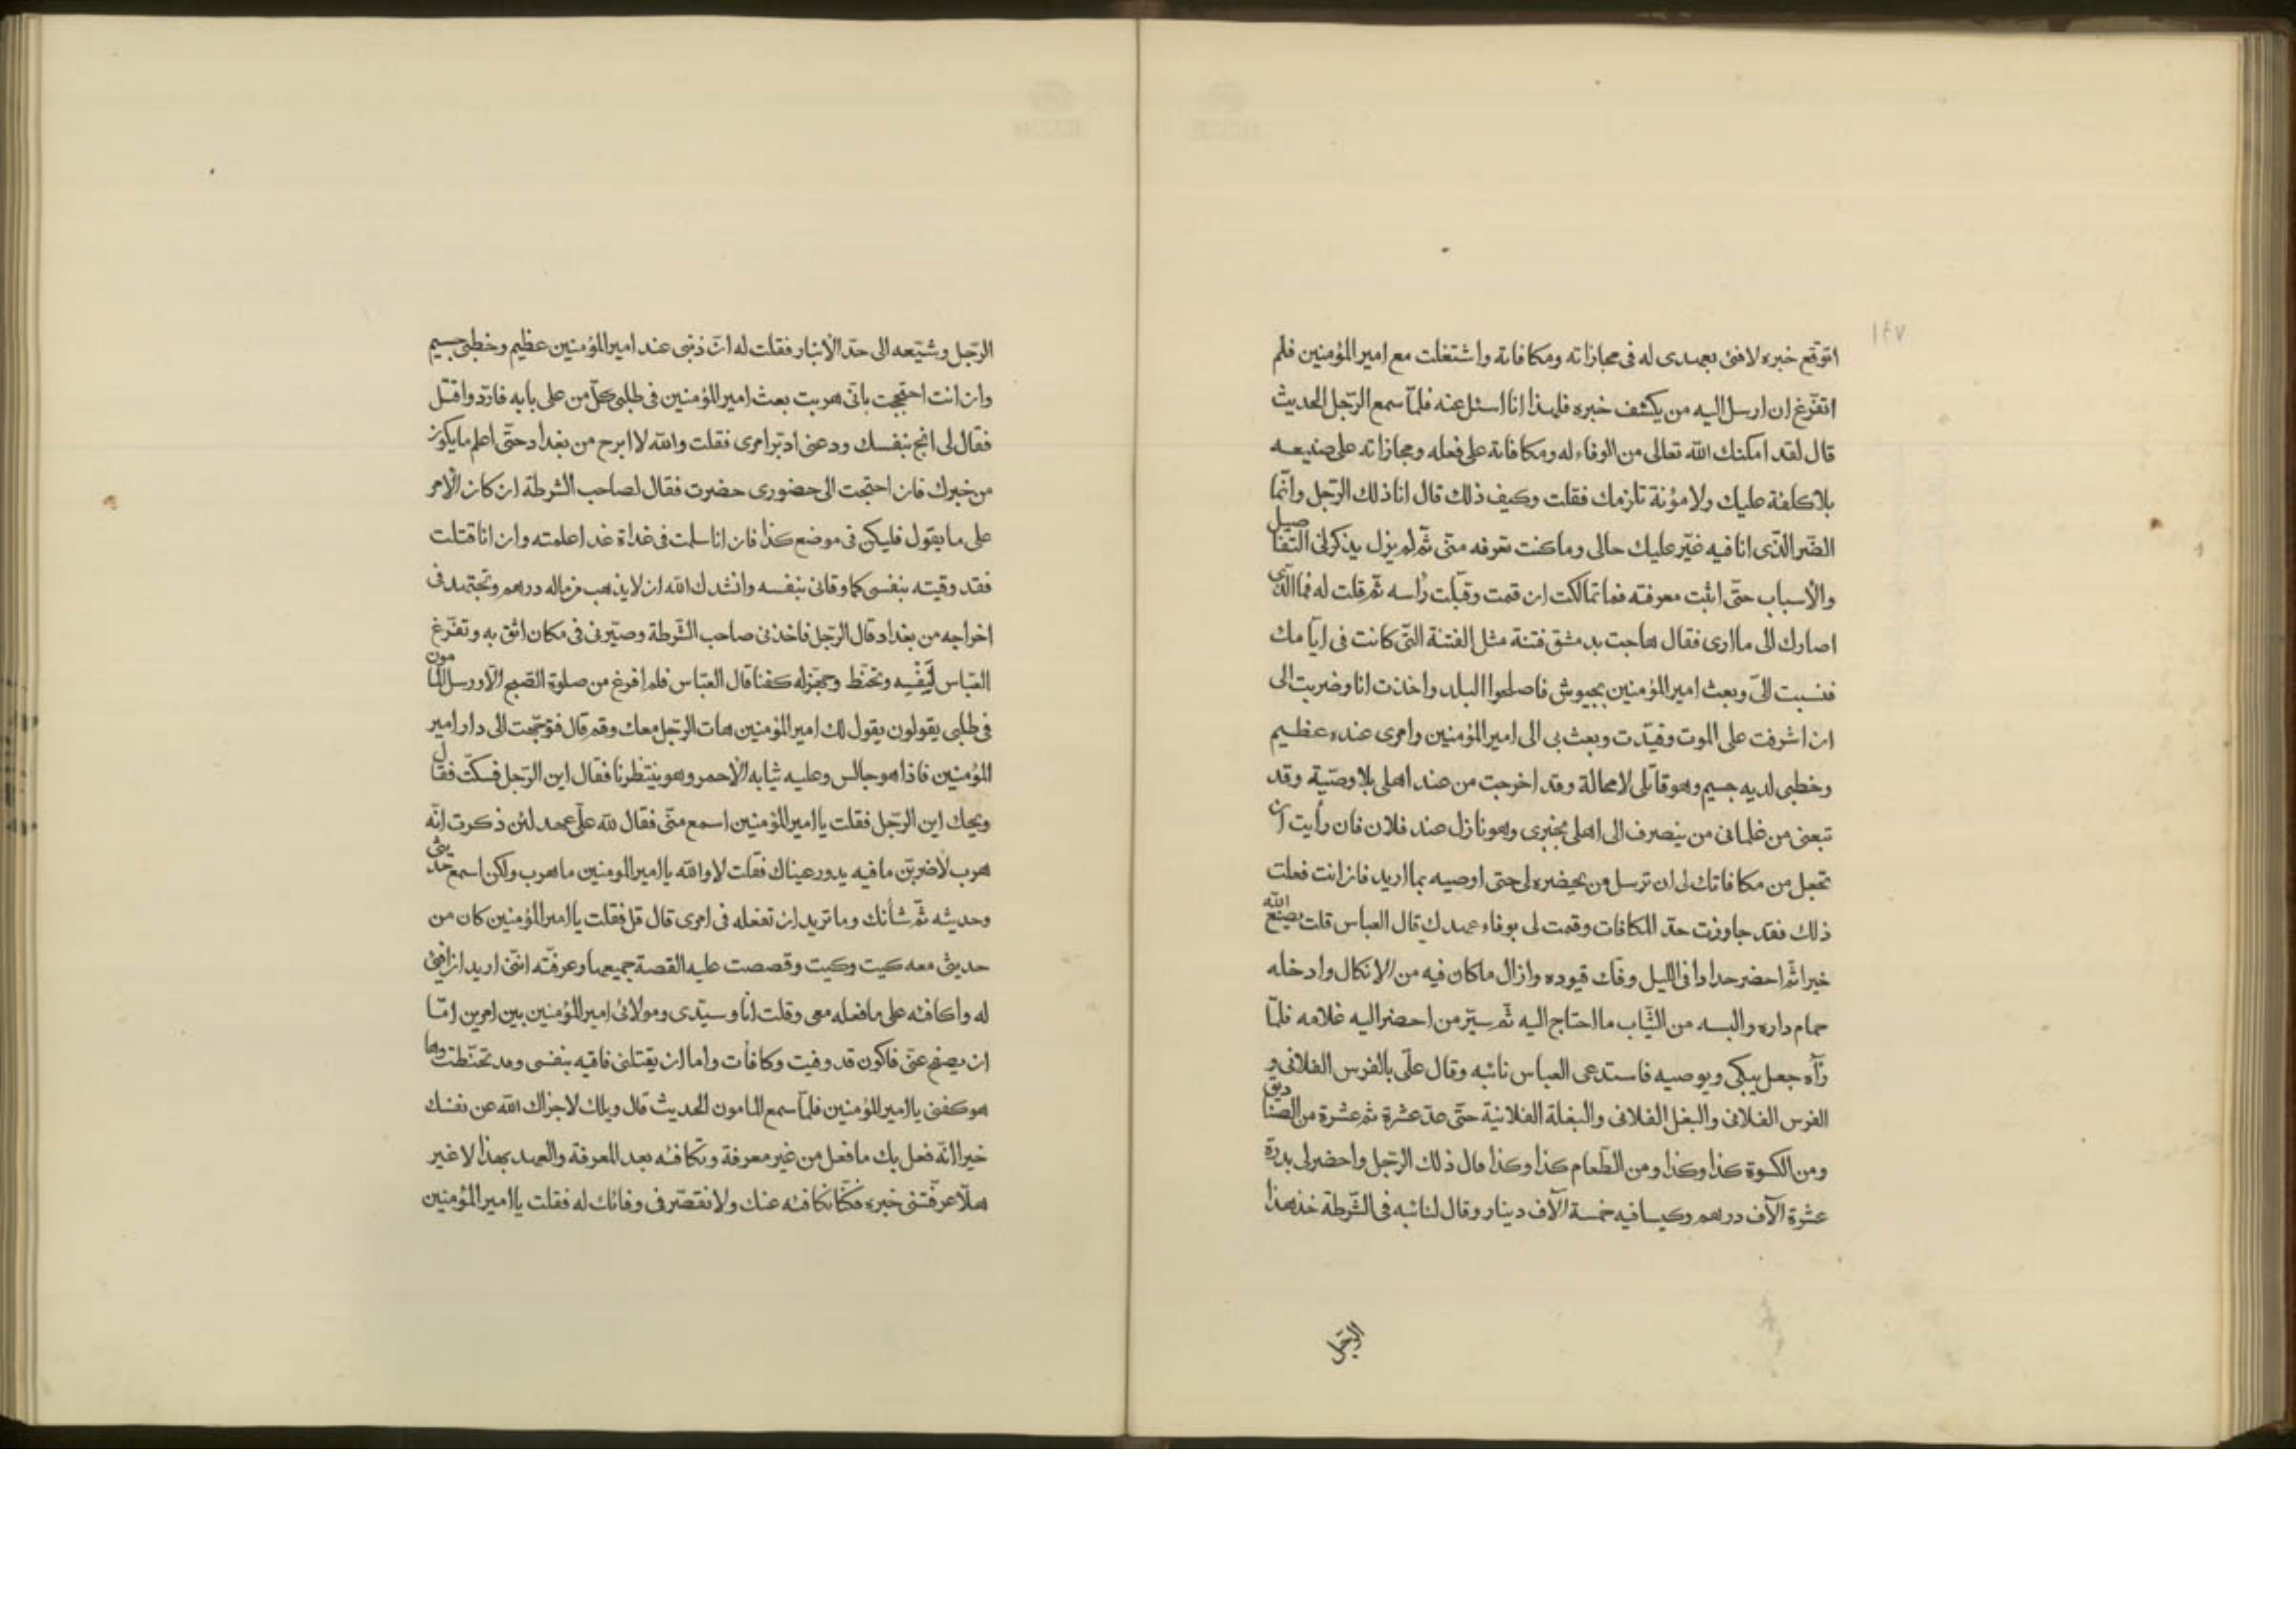 ١٤٧
اتوقّع خبره لافئ بعهدى له فى مجازاته ومكافاته واشتغلت مع امير المؤمنين فلم
اتفرّغ ان ارسل اليه من يكشف خبره فلهذا انا اسئل عنه فلمّا سمع الرّجل الحديث
قال لقد امكنك الله تعالى من الوفاء له ومكافاته على فعله ومجازاته على صنيعه
بلا كلفة عليك ولا مؤنة تلزمك فقلت وكيف ذلك قال انا ذلك الرّجل وانّما
الضّر الّذى انا فيه غيّر عليك حالى وما كنت تعرفه منّى ثمّ لم يزل يذكر لى التّفاصيل
والأسباب حتّى اثبت معرفته فما تمالكت ان قمت وقبّلت رأسه ثمّ قلت له فما الّذى
اصارك الى ما ارى فقال هاجت بدمشق فتنة مثل الفتنة الّتى كانت فى ايّامك
فنسبت الىّ وبعث امير المؤمنين بجيوش فاصلحوا البلد واخذت انا وضربت الى
ان اشرفت على الموت وقيّدت وبعث بى الى امير المؤمنين وامرى عنده عظيم
وخطبى لديه جسيم وهو قاتلى لا محالة وقد اخرجت من عند اهلى بلا وصيّة وقد
تبعنى من غلمانى من ينصرف الى اهلى بخبرى وهو نازل عند فلان فان رأيت ان
تجعل من مكافاتك لى ان ترسل من يحضره لى حتى اوصيه بما اريد فان انت فعلت
ذلك فقد جاوزت حدّ المكافات وقمت لى بوفاء عهدك قال العباس قلت يصنع الله
خيرا ثمّ احضر حدادا فى الليل وفك قيوده وازال ما كان فيه من الانكال وادخله
حمام داره والبسه من الثّياب ما احتاج اليه ثمّ سيّر من احضر اليه غلامه فلمّا
رآه جعل يبكى ويوصيه فاستدعى العباس نائبه وقال علىّ بالفرس الفلانى و
الفرس الفلانى والبغل الفلانى والبغلة الفلانيّة حتّى عدّ عشرة ثم عشرة من الصّناديق
ومن الكسوة كذا وكذا ومن الطّعام كذا وكذا قال ذلك الرّجل واحضر لى بدرة
عشرة آلاف درهم وكيسا فيه خمسة آلاف دينار وقال لنائبه فى الشّرطة خذ هذا
الرّجل
الرّجل وشيّعه الى حدّ الأنبار فقلت له انّ ذنبى عند امير المؤمنين عظيم وخطبى جسيم
وان انت احتججت بانّى هربت بعث امير المؤمنين فى طلبى كلّ من على بابه فاردّ واقتل
فقال لى انج بنفسك ودعنى ادبّر امرى فقلت والله لا ابرح من بغداد حتّى اعلم ما يكون
من خبرك فان احتجت الى حضورى حضرت فقال لصاحب الشرطة ان كان الأمر
على ما يقول فليكن فى موضع كذا فان انا سلمت فى غداة غد اعلمته وان انا قتلت
فقد وقيته بنفسى كما وقانى بنفسه وانشدك الله ان لا يذهب من ماله درهم وتجتهد فى
اخراجه من بغداد قال الرّجل فاخذنى صاحب الشّرطة وصيّرنى فى مكان اثق به وتفرّغ
العبّاس لنفسه وتحنّط وجهّز له كفنا قال العبّاس فلم افرغ من صلوة الصّبح الّا ورسل المأمون
فى طلبى يقولون يقول لك امير المؤمنين هات الرّجل معك وقم قال فتوجّهت الى دار امير
المؤمنين فاذا هو جالس وعليه ثيابه الأحمر وهو ينتظرنا فقال اين الرّجل فسكتّ فقال
ويحك اين الرّجل فقلت يا امير المؤمنين اسمع منّى فقال لله علىّ عهد لئن ذكرت انّه
هرب لأضربنّ ما فيه يدور عيناك فقلت لا والله يا امير المومنين ما هرب ولكن اسمع حديثى
وحديثه ثمّ شأنك وما تريد ان تفعله فى امرى قال قل فقلت يا امير المؤمنين كان من
حديثى معه كيت وكيت وقصصت عليه القصة جميعها وعرفّته انّنى اريد ان افئ
له واكافئه على ما فعله معى وقلت انا وسيّدى ومولائى امير المؤمنين بين امرين امّا
ان يصفح عنّى فاكون قد وفيت وكافأت واما ان يقتلنى فاقيه بنفسى وقد تحنّطت وها
هو كفنى يا امير المؤمنين فلمّا سمع المامون الحديث قال ويلك لا جزاك الله عن نفسك
خيرا انّه فعل بك ما فعل من غير معرفة وتكافئه بعد المعرفة والعهد بهذا لا غير
هلّا عرفّتنى خبره فكنّا نكافئه عنك ولا نقصّر فى وفائك له فقلت يا امير المؤمنين